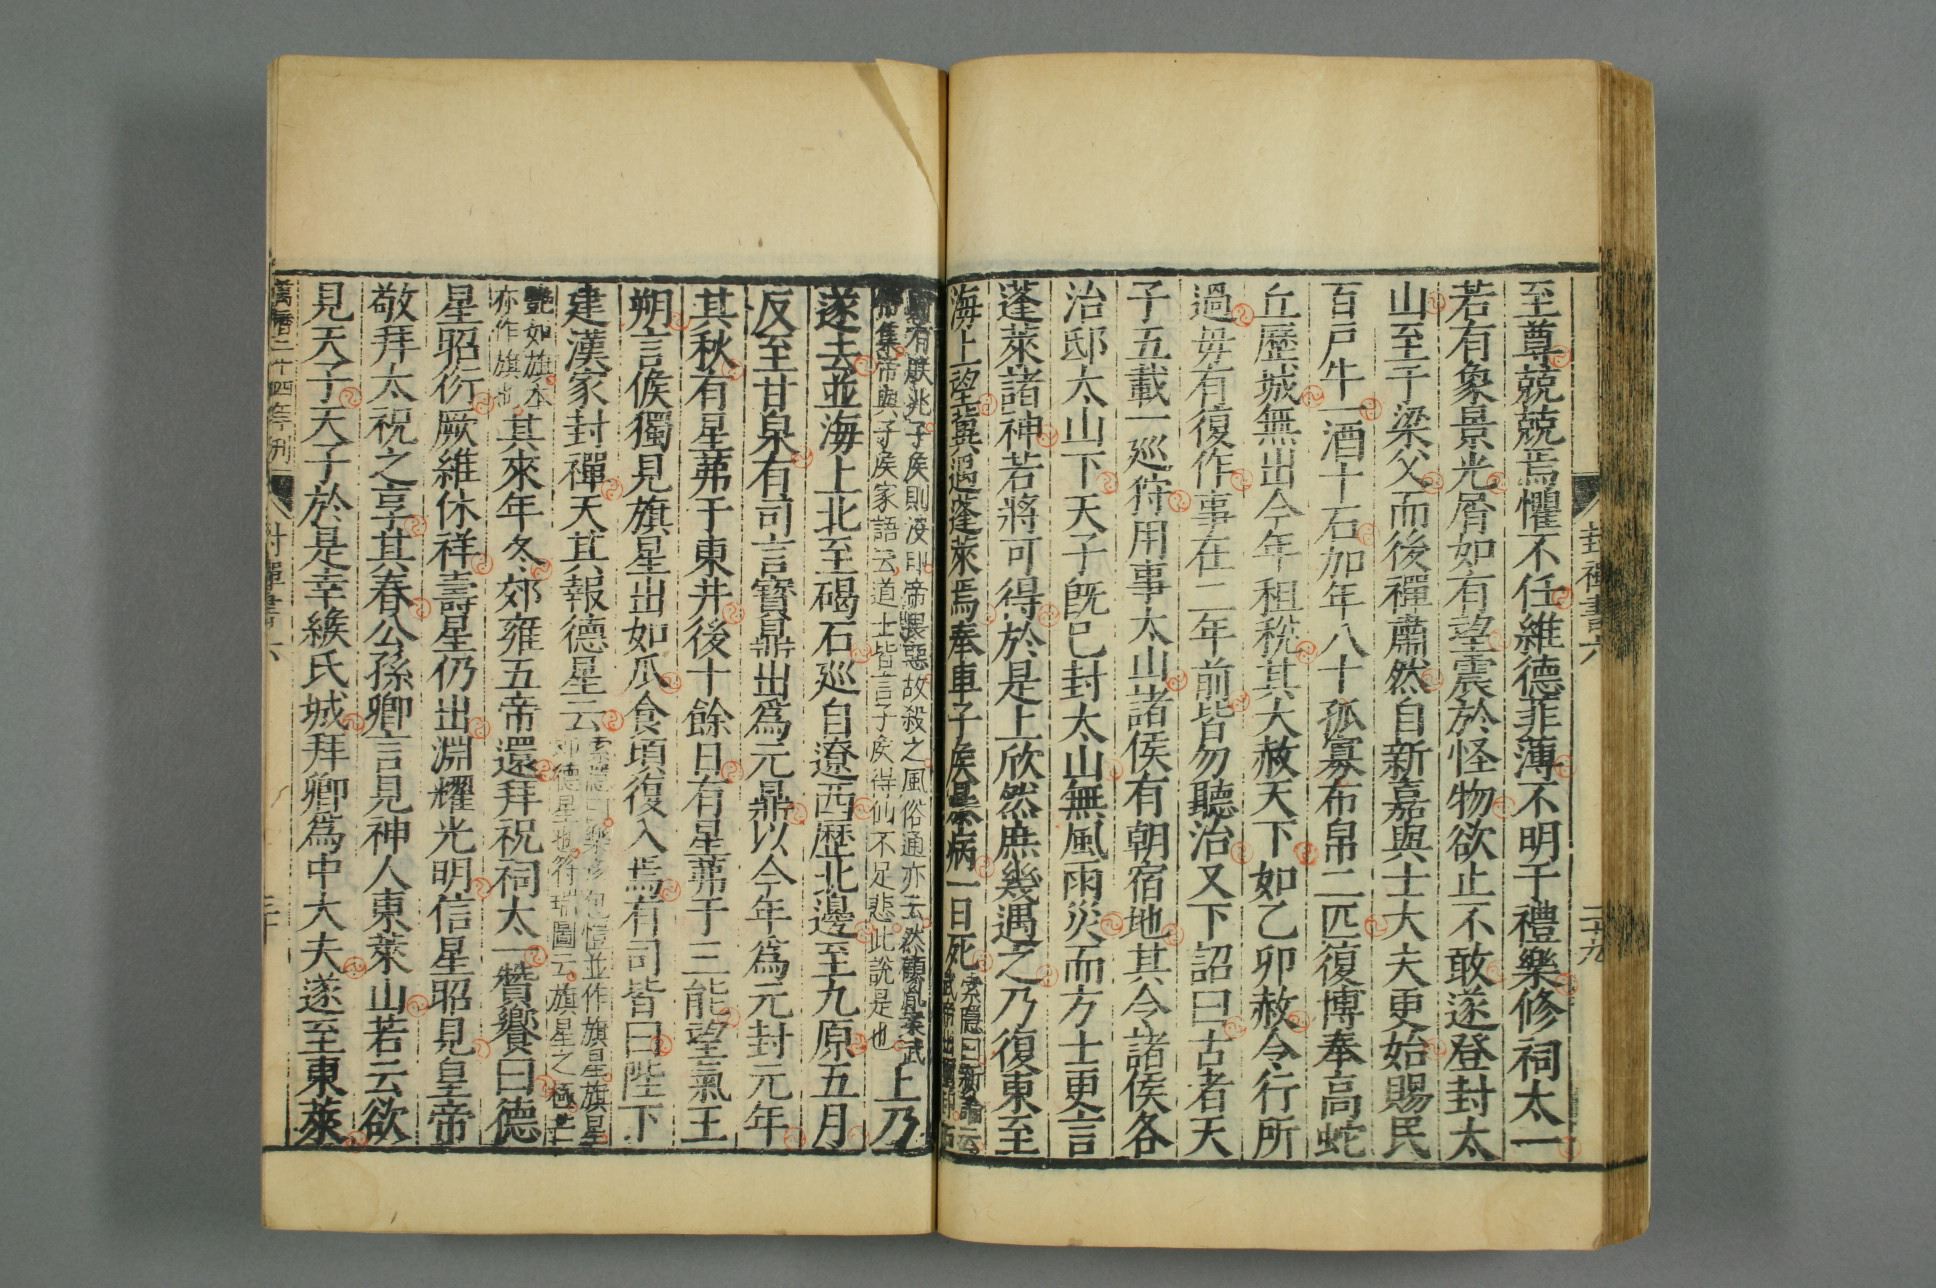 封禪書六
二十九
至尊兢兢焉懼不任維德菲薄不明于禮樂修祠太一
若有象景光屑如有望震於怪物欲止不敢遂登封太
山至于梁父而後禪肅然自新嘉與士大夫更始賜民
百戸牛一酒十石加年八十孤寡布帛二匹復博奉高蛇
丘歷城無出今年租稅其大赦天下如乙卯赦令行所
過毋有復作事在二年前皆勿聽治又下詔曰古者天
子五載一巡狩用事太山諸侯有朝宿地其令諸侯各
治邸太山下天子旣已封太山無風雨災而方士更言
蓬萊諸神若將可得於是上欣然庶幾遇之乃復東至
海上望冀遇蓬萊焉奉車子侯暴病一日死索隱曰新論云
武帝出璽印石
有朕兆子侯則没印帝畏惡故殺之風俗通亦云然顧胤案武
帝集帝與子侯家語云道士皆言子侯得仙不足悲此說是也
上乃
遂去並海上北至碣石巡自遼西歷北邊至九原五月
反至甘泉有司言寶鼎出爲元鼎以今年爲元封元年
其秋有星茀于東井後十餘日有星茀于三能望氣王
朔言候獨見旗星出如瓜食頃復入焉有司皆曰陛下
建漢家封禪天其報德星云
德星也符瑞圖云旗星之極
並作旗星旗星
艷如旗本
亦作旗
其來年冬郊雍五帝還拜祝祠太一贊饗曰德
星昭衍厥維休祥壽星仍出淵耀光明信星昭見皇帝
敬拜太祝之享其春公孫卿言見神人東萊山若云欲
見天子天子於是幸緱氏城拜卿爲中大夫遂至東萊
萬曆二十四年刊
封禪書六
三十